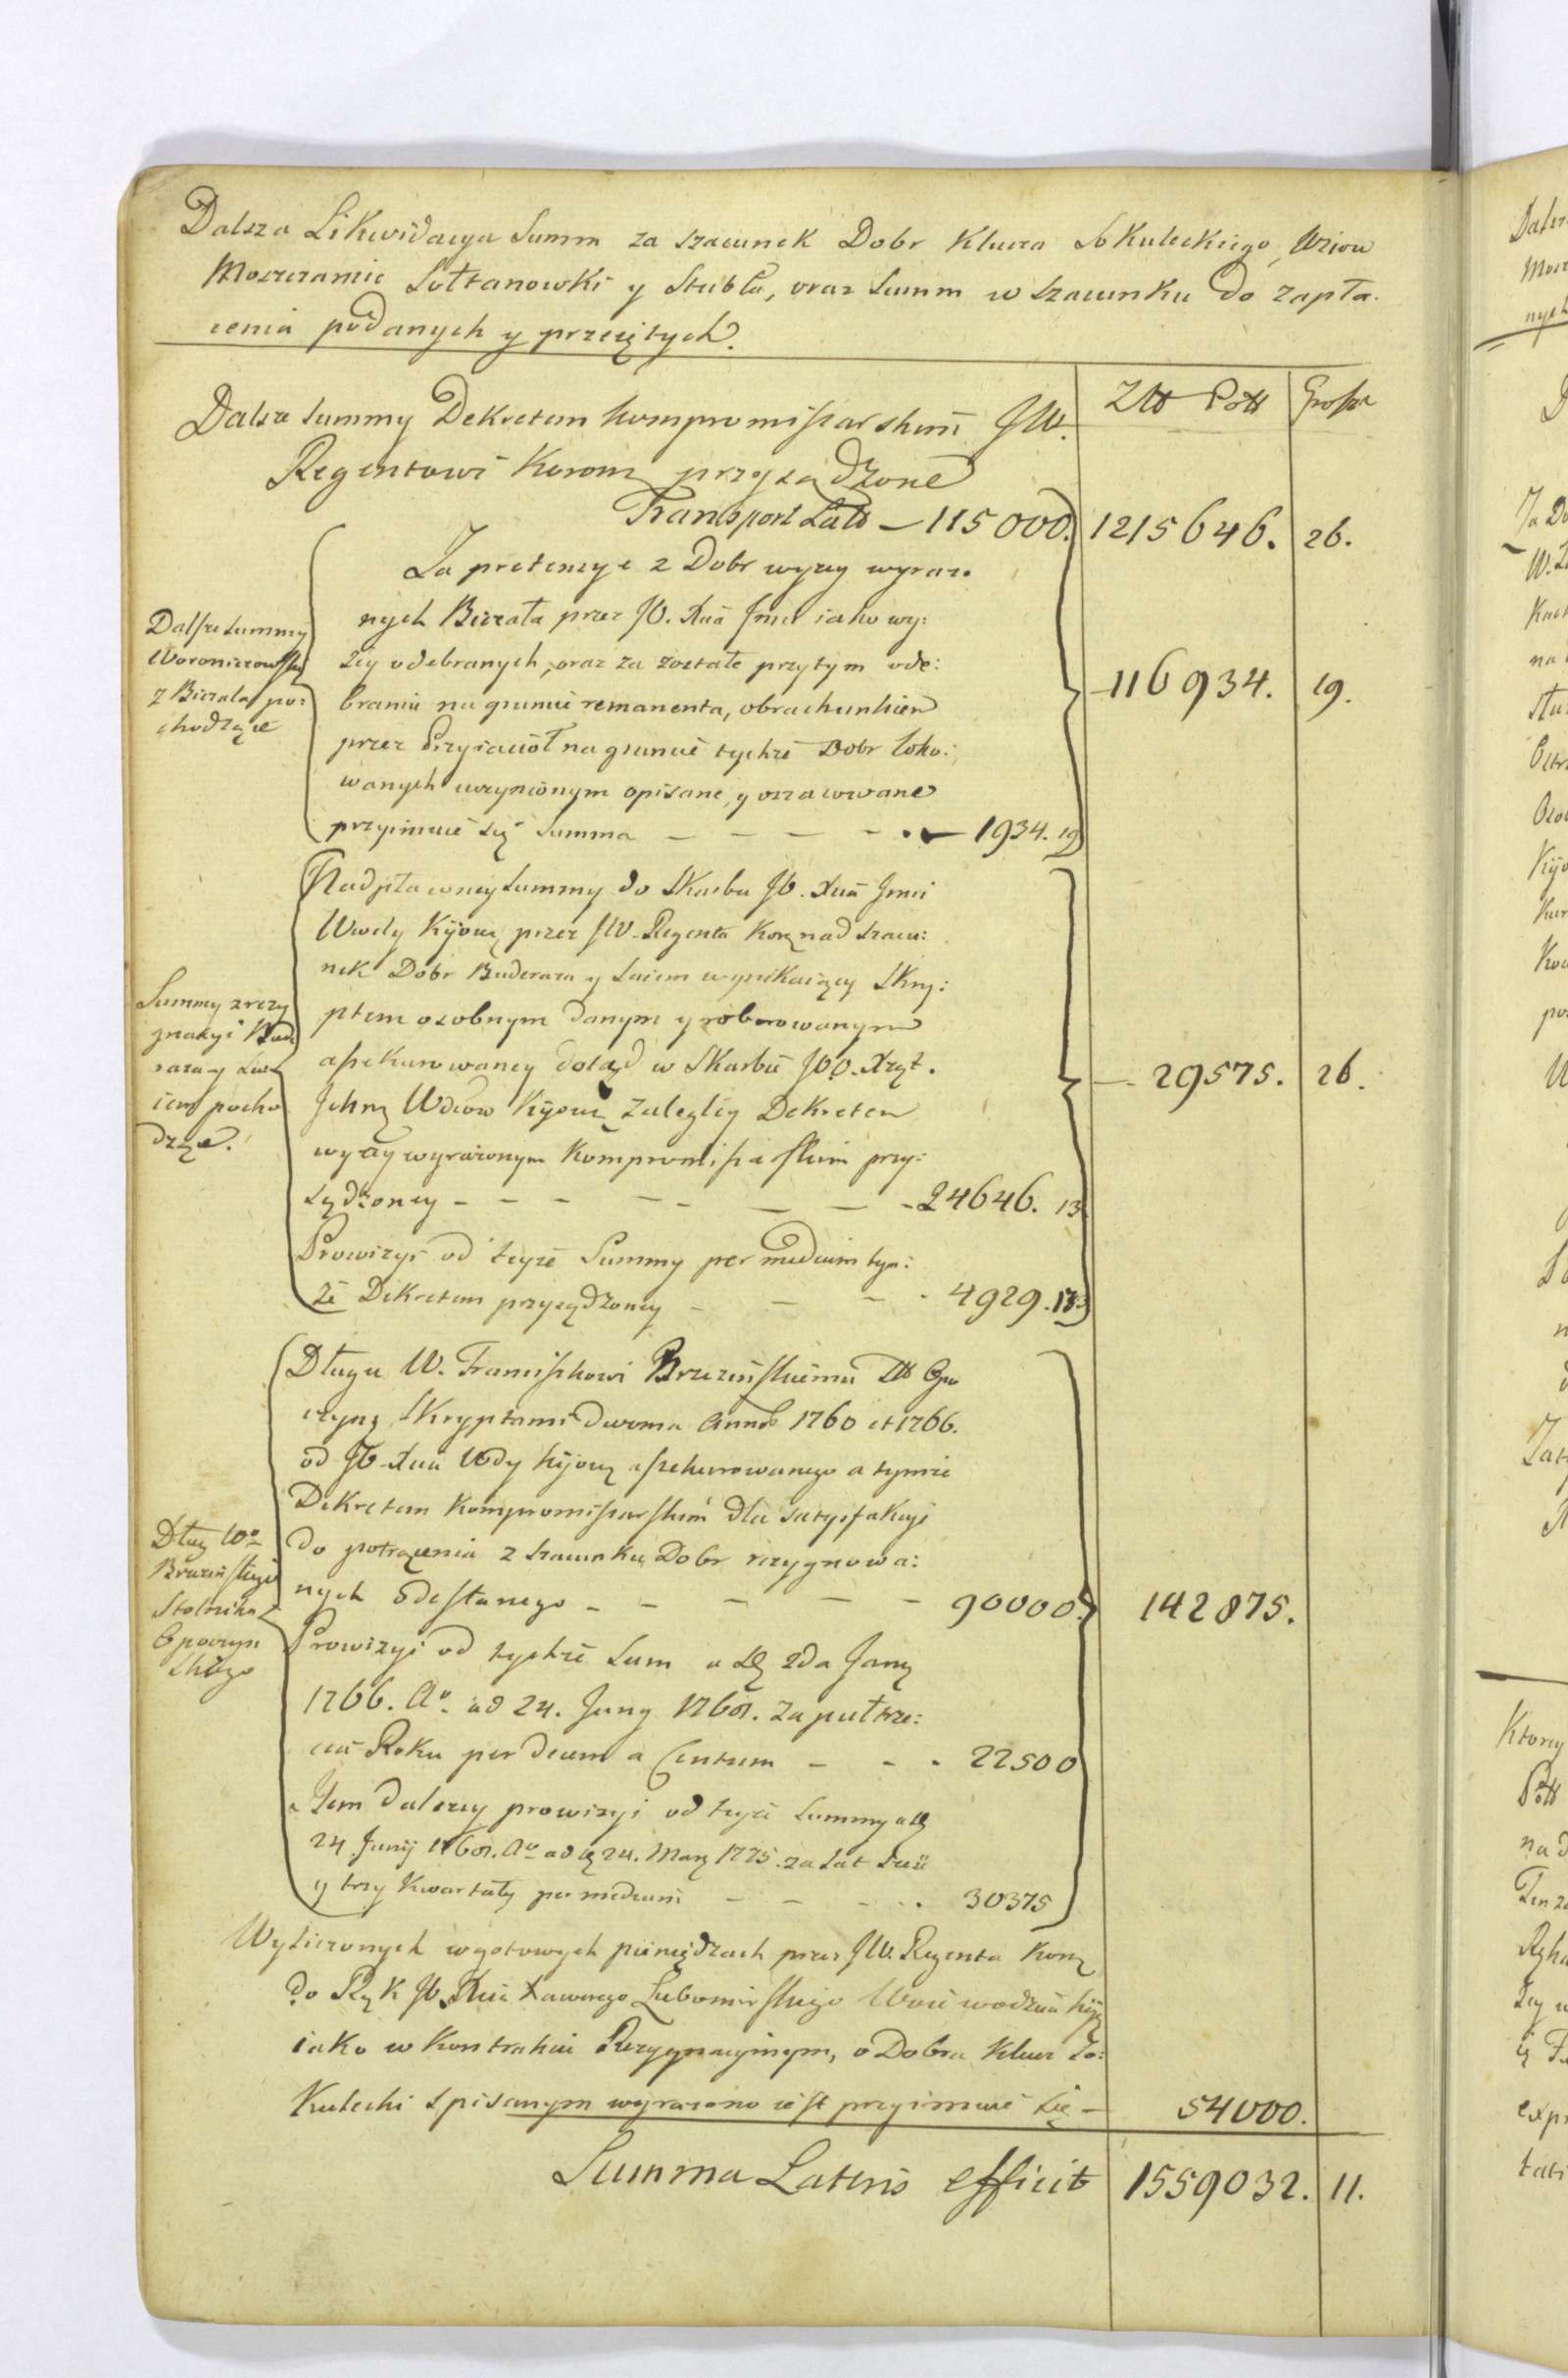 Dalsza Likwidacya Summ za szacunek Dobr Klucza Sokuleckiego, Uziou
Moszczanic Sołtanowki y Stubła, oraz Summ w szacunku do zapła-
cenia podanych y przeiętych.
Złł Poll Grosze
Dalsze summy Dekretem kompromissarskim JW.
Regentowi Koronn przysądzone
Transport Latᵗˢ — 115000. 1215646. 26.
Za pretensye z Dobr wyzey wyraz:
nych Biczala przez JO. Xcia Jmci iako wy:
żey odebranych, oraz za zostałe przytym ode:
braniu na gruncie remanenta, obrachunkiem
przez Przyiacioł na gruncie tychże Dobr loko:
wanych uczynionym opisane, y oszacowane
przyimuie się Summa — — — — 1934. 19
Dalsze summy
Woroniczowskie
z Biczala po:
chodzące
— 116934. 19.
Nadpłaconey summy do Skarbu JO. Xcia Jmci
Wwdy Kijow przez JW. Regenta Kor nad szacu:
nek Dobr Buderaza y Suiem wynikaiącey Skry:
ptem osobnym danym y roborowanym
assekurowaney dotąd w Skarbie JOO. Xząt.
Ichm Wdow Kijow zaległey Dekretem
wyzey wyrażonym Kompromissarskim przy:
sądzoney — — — — — 24646. 13
Prowizyi od teyże Summy per medium tym:
że Dekretem przysądzoney — — — 4929. 13
Summy z rezy
gnacyi Bude
raza y Sui
iem pocho
dzące.
— 29575. 26.
Długu W. Franciszkowi Brzezinskiemu Stt Opo
czyns Skryptami dwoma Annis 1760 et 1766.
od JO. Xcia Wdy Kijow assekurowanego a tymże
Dekretem Kompromissarskim dla satysfakcyi
do potrącenia z szacunku Dobr rezygnowa:
nych odesłanego — — — — — 90000.
Prowizyi od tychże Sum a die 2da Jany
1766. Aº. ad 24. Juny 1768. za puł trze:
cia Roku per decem a Centum — — 22500
Item dalszey prowizyi od teyże Summy a die
24 Junij 1768. Aº ad d 24. Marz 1775. za Lat sześć
y trzy Kwartały per medium — — — 30375
Dług Wº
Brzezinskiego
Stolnika
Opoczyn
skiego
142875.
Wyliczonych w gotowych pieniądzach przez JW. Regenta Koron
do Rąk JO. Xcia Xawerego Lubomirskiego Woiewodzica Kijo
iako w Kontrakcie Rezygnacyinym, o Dobra Klucz So:
kulecki spisanym wyrażono iest przyimuie się — 54000.
Summa Lateris efficit 1559032. 11.